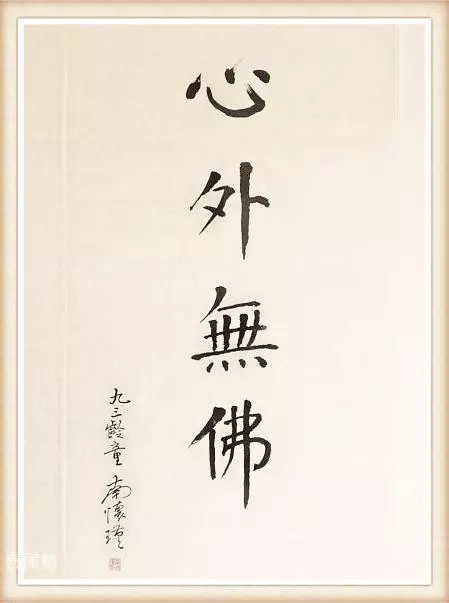 心外無佛
九三齡童 南懷瑾